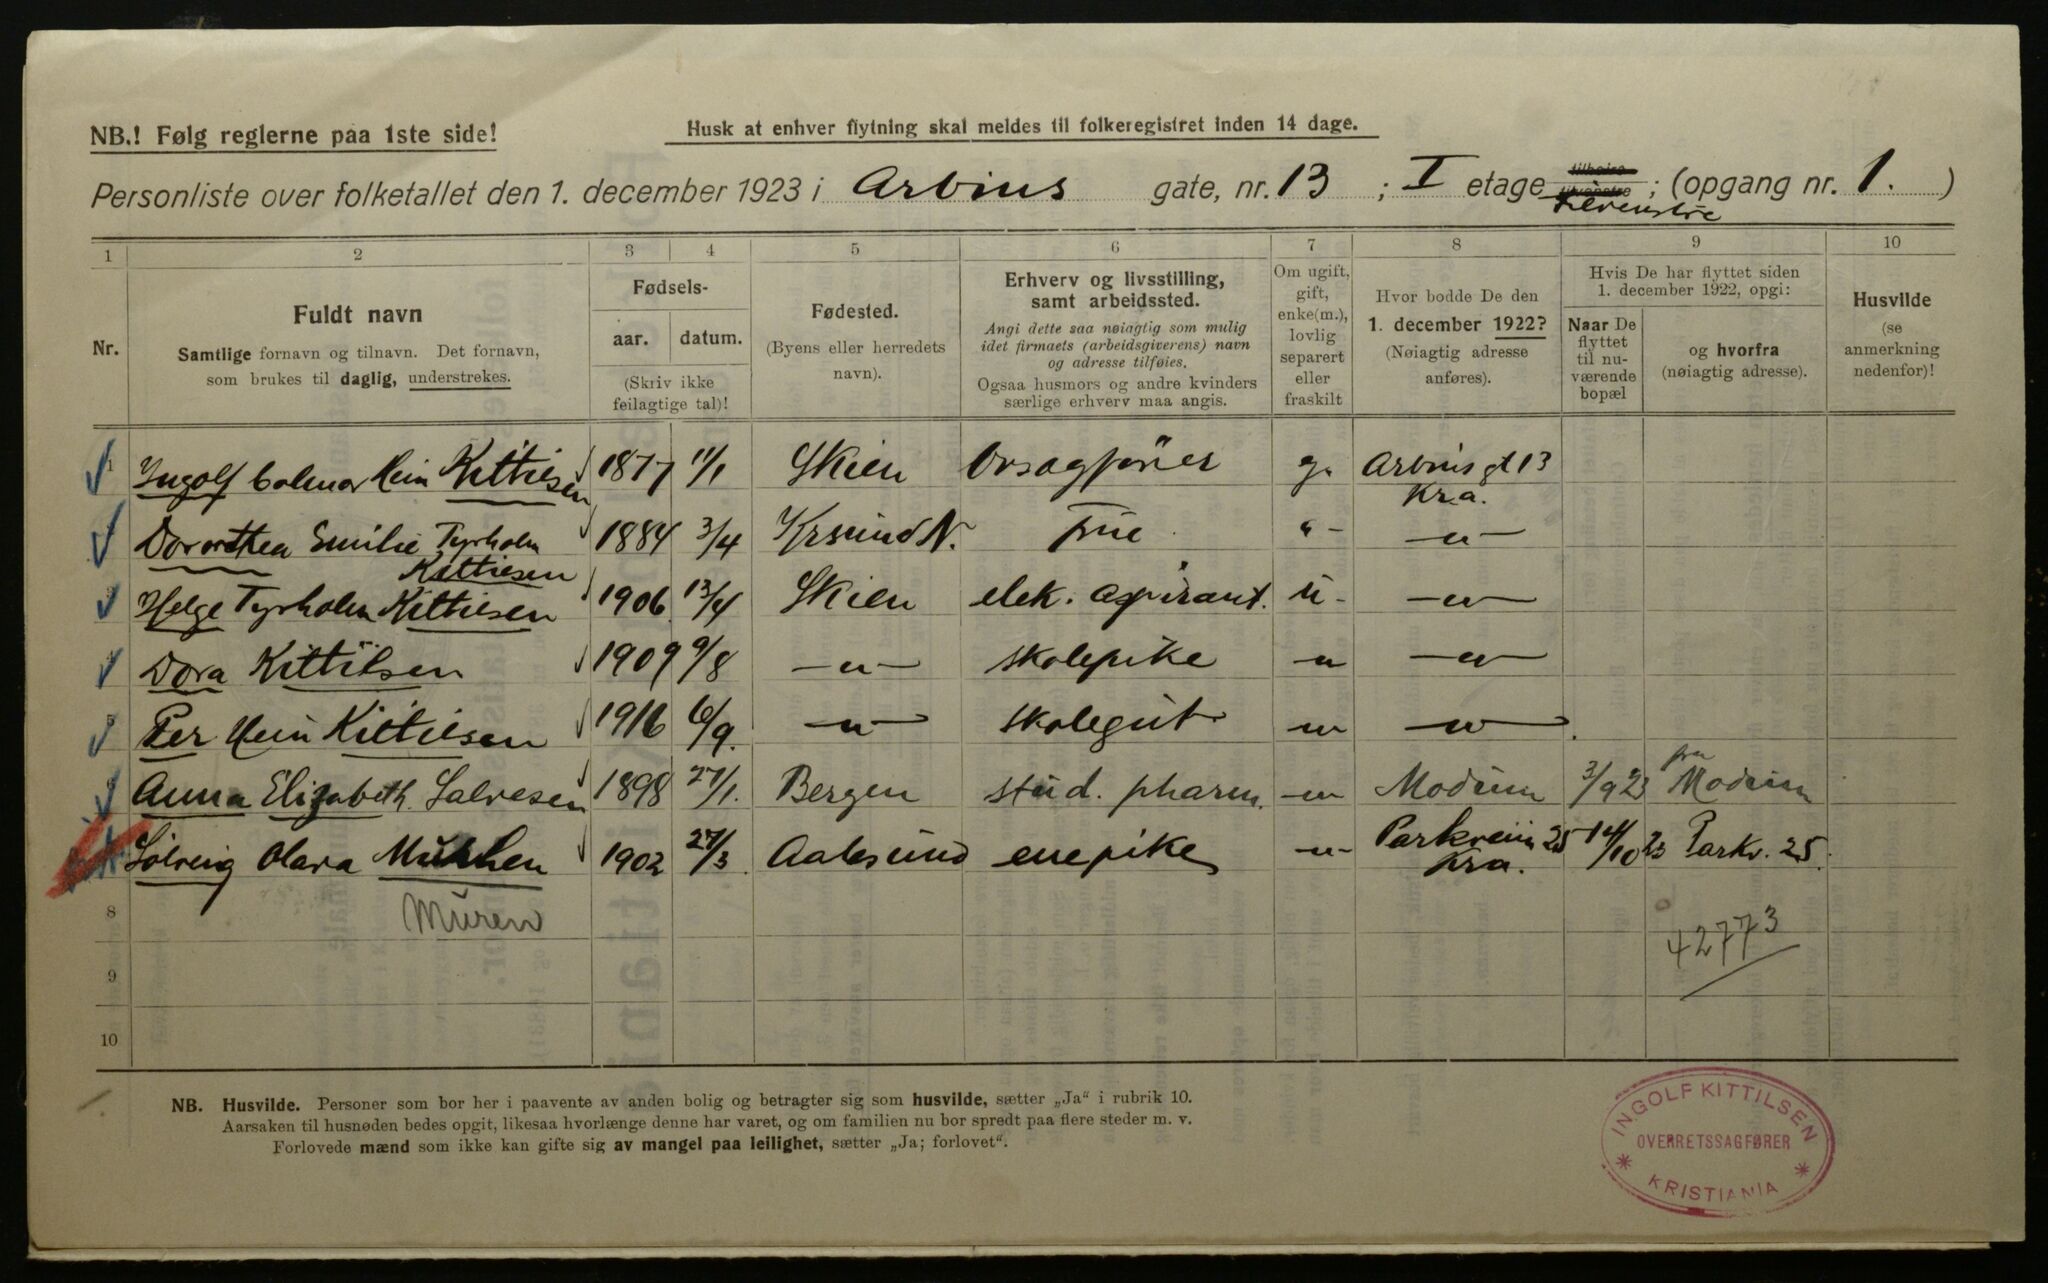 NB.! Følg reglerne paa 1ste side!
Husk at enhver flytning skal meldes til folkeregistret inden 14 dage.
Personliste over folketallet den 1. december 1923 i Arbins gate, nr. 13 ; I etage tilhøire tilvenstre ; (opgang nr. 1. )
tilvenstre
1 2 3 4 5 6 7 8 9 10
Nr.
Fuldt navn
Samtlige fornavn og tilnavn. Det fornavn,
som brukes til daglig, understrekes.
Fødsels-
aar. datum.
(Skriv ikke
feilagtige tal)!
Fødested.
(Byens eller herredets
navn).
Erhverv og livsstilling,
samt arbeidssted.
Angi dette saa nøiagtig som mulig
idet firmaets (arbeidsgiverens) navn
og adresse tilføies.
Ogsaa husmors og andre kvinders
særlige erhverv maa angis.
Om ugift,
gift,
enke(m.),
lovlig
separert
eller
fraskilt
Hvor bodde De den
1. december 1922?
(Nøiagtig adresse
anføres).
Hvis De har flyttet siden
1. december 1922, opgi:
Naar De
flyttet
til nu-
værende
bopæl
og hvorfra
(nøiagtig adresse).
Husvilde
(se
anmerkning
nedenfor)!
1 Ingolf Colmar Hein Kittilsen 1877 11/1 Skien Orsagfører g. Arbinsgt 13
Kra.
Dorothea Emilie Tyrholm 1884 3/4 Krsund N. Frue " - —"—
Kittilsen
3 Helge Tyrholm Kittilsen 1906 13/4 Skien elek. aspirant. u - —"—
4 Dora Kittilsen 1909 9/8 —"— skolepike —" —"—
5 Per Hein Kittilsen 1916 6/9. —"— skolegut —" —"—
6 Anna Elizabeth Salvesen 1898 27/1. Bergen stud. pharm. —" Modum 3/9 23 fra Modum
Solveig Olava 1902 27/3 Aalesund enepike —"— Parkveiin 25 14/10 23 Parkv. 25.
Kra.
8 Muren
42773
9
10
NB. Husvilde. Personer som bor her i paavente av anden bolig og betragter sig som husvilde, sætter „Ja“ i rubrik 10.
Aarsaken til husnøden bedes opgit, likesaa hvorlænge denne har varet, og om familien nu bor spredt paa flere steder m. v.
Forlovede mænd som ikke kan gifte sig av mangel paa leilighet, sætter „Ja; forlovet“.
INGOLF KITTILSEN
OVERRETSSAGFØRER
* KRISTIANIA *